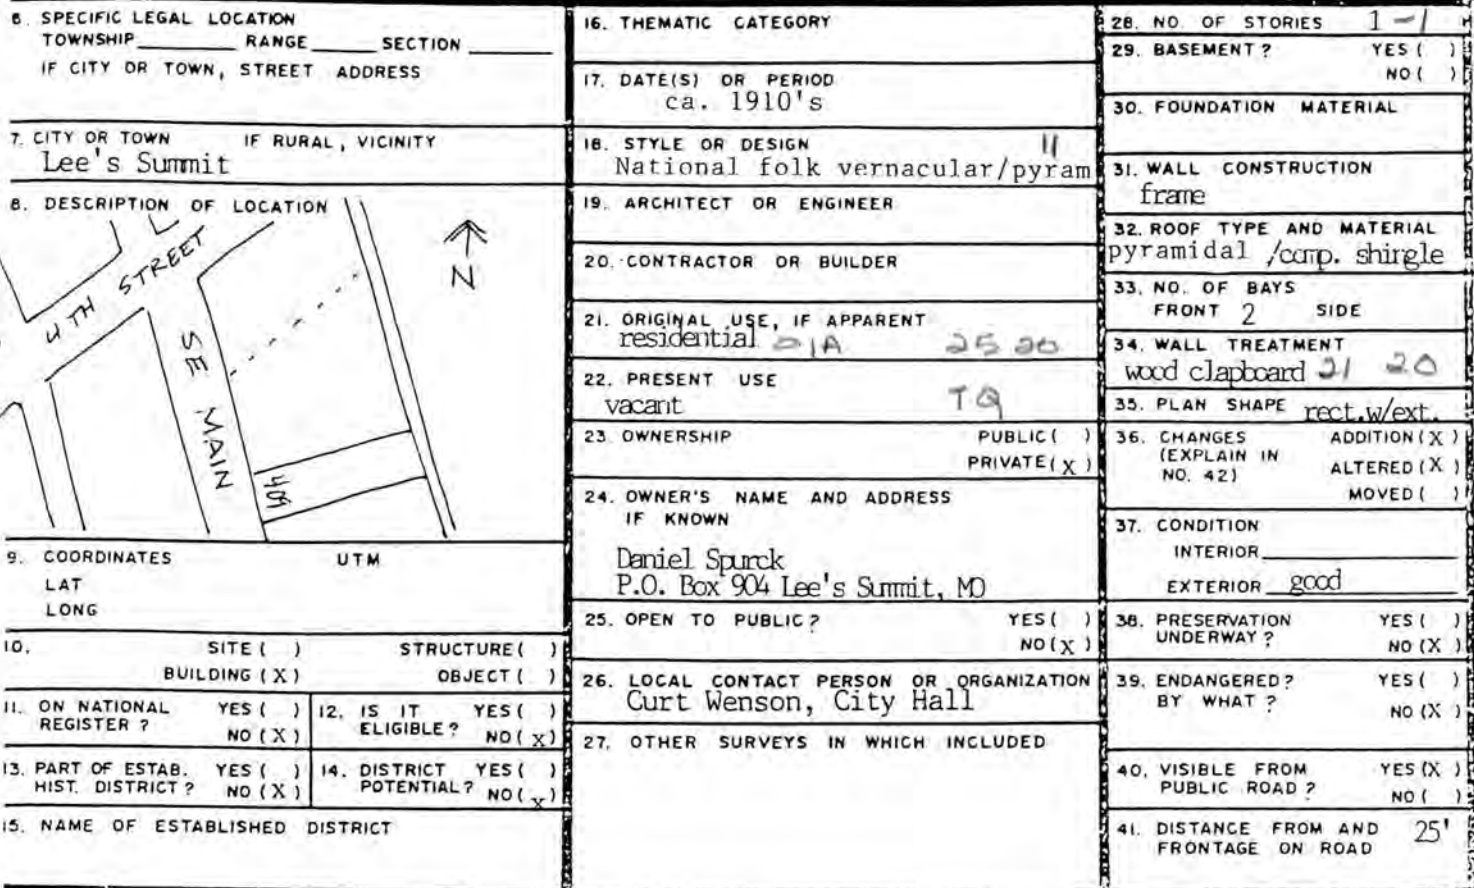 6. SPECIFIC LEGAL LOCATION
TOWNSHIP________ RANGE______ SECTION ______
IF CITY OR TOWN, STREET ADDRESS
7. CITY OR TOWN IF RURAL, VICINITY
Lee's Summit
8. DESCRIPTION OF LOCATION
4TH STREET
N
SE MAIN
409
9. COORDINATES UTM
LAT
LONG
10. SITE ( ) STRUCTURE ( )
BUILDING (X) OBJECT ( )
11. ON NATIONAL YES ( )
REGISTER ? NO (X)
12. IS IT YES ( )
ELIGIBLE ? NO (X)
13. PART OF ESTAB. YES ( )
HIST. DISTRICT ? NO (X)
14. DISTRICT YES ( )
POTENTIAL? NO (X)
15. NAME OF ESTABLISHED DISTRICT
16. THEMATIC CATEGORY
17. DATE(S) OR PERIOD
ca. 1910's
18. STYLE OR DESIGN 11
National folk vernacular/pyram
19. ARCHITECT OR ENGINEER
20. CONTRACTOR OR BUILDER
21. ORIGINAL USE, IF APPARENT
residential 01A 25 20
22. PRESENT USE
vacant
23. OWNERSHIP PUBLIC ( )
PRIVATE (X)
24. OWNER'S NAME AND ADDRESS
IF KNOWN
Daniel Spurck
P.O. Box 904 Lee's Summit, MO
25. OPEN TO PUBLIC ? YES ( )
NO (X)
26. LOCAL CONTACT PERSON OR ORGANIZATION
Curt Wenson, City Hall
27. OTHER SURVEYS IN WHICH INCLUDED
28. NO. OF STORIES 1 -1
29. BASEMENT ? YES ( )
NO ( )
30. FOUNDATION MATERIAL
31. WALL CONSTRUCTION
frame
32. ROOF TYPE AND MATERIAL
pyramidal /comp. shingle
33. NO. OF BAYS
FRONT 2 SIDE
34. WALL TREATMENT
wood clapboard 21 20
35. PLAN SHAPE rect.w/ext.
36. CHANGES ADDITION (X)
(EXPLAIN IN ALTERED (X)
NO. 42) MOVED ( )
37. CONDITION
INTERIOR________
EXTERIOR good
38. PRESERVATION YES ( )
UNDERWAY ? NO (X)
39. ENDANGERED ? YES ( )
BY WHAT ? NO (X)
40. VISIBLE FROM YES (X)
PUBLIC ROAD ? NO ( )
41. DISTANCE FROM AND 25'
FRONTAGE ON ROAD